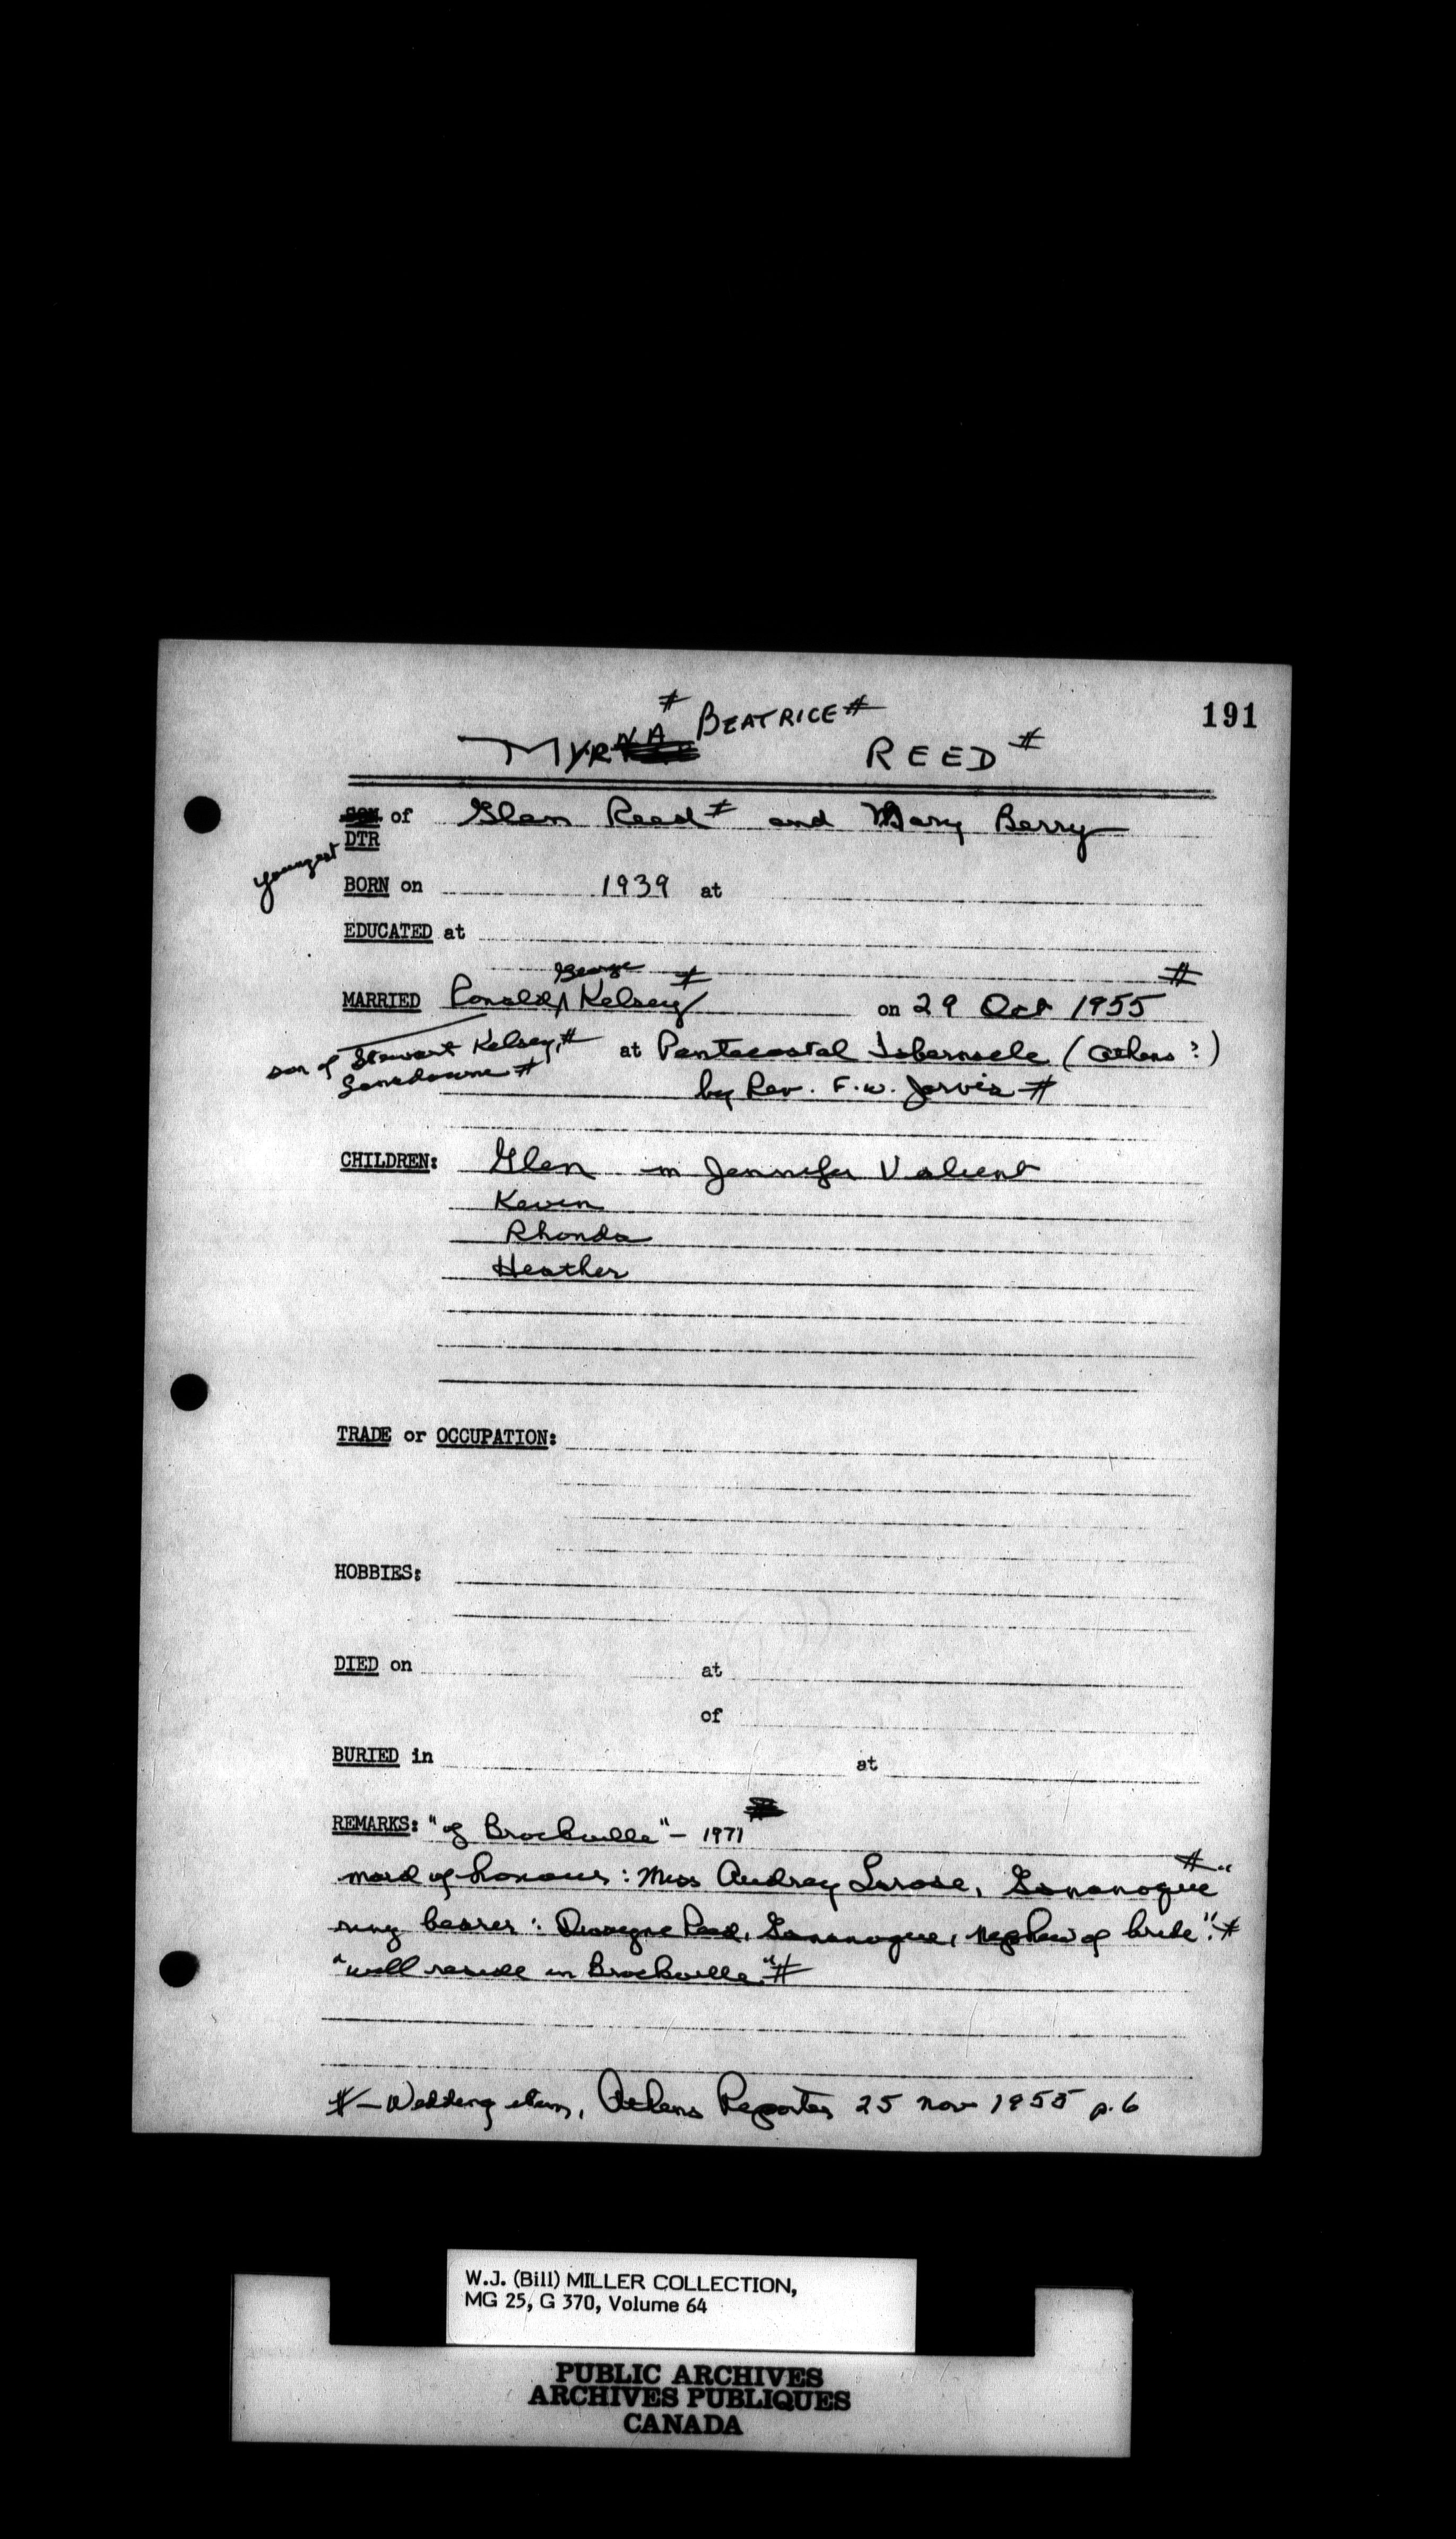 191
# BEATRICE #
MYRNA REED #
SON of Glen Reed # and Mary Berry
youngest DTR
BORN on 1939 at
EDUCATED at
George #
MARRIED Ronald ∧ Kelsey on 29 Oct 1955 #
son of Stewart Kelsey, # at Pentecostal Tabernacle (Athens?)
Lansdowne # by Rev. F.W. Jarvis #
CHILDREN: Glen m Jennifer Valient
Kevin
Rhonda
Heather
TRADE or OCCUPATION:
HOBBIES:
DIED on at
of
BURIED in at
REMARKS: "of Brockville" - 1971
maid of honour: Miss Audrey Larose, Gananoque #"
ring bearer: Dwayne Reed, Gananoque, nephew of bride". #
"will reside in Brockville" #
# - Wedding item, Athens Reporter 25 Nov 1955 p. 6
W.J. (Bill) MILLER COLLECTION,
MG 25, G 370, Volume 64
PUBLIC ARCHIVES
ARCHIVES PUBLIQUES
CANADA